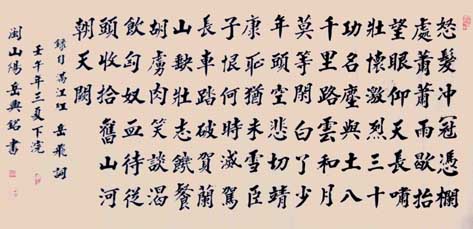 怒髮冲冠憑欄
處蕭蕭雨歇抬
望眼仰天長嘯
壯懷激烈三十
功名塵與土八
千里路雲和月
莫等閒白了少
年頭空悲切靖
康恥猶未雪臣
子恨何時滅駕
長車踏破賀蘭
山缺壯志饑餐
胡虜肉笑談渴
飲匈奴血待從
頭收拾舊山河
朝天闕
錄自 江 岳飛詞
壬午年三夏下浣
山陽岳興銘書